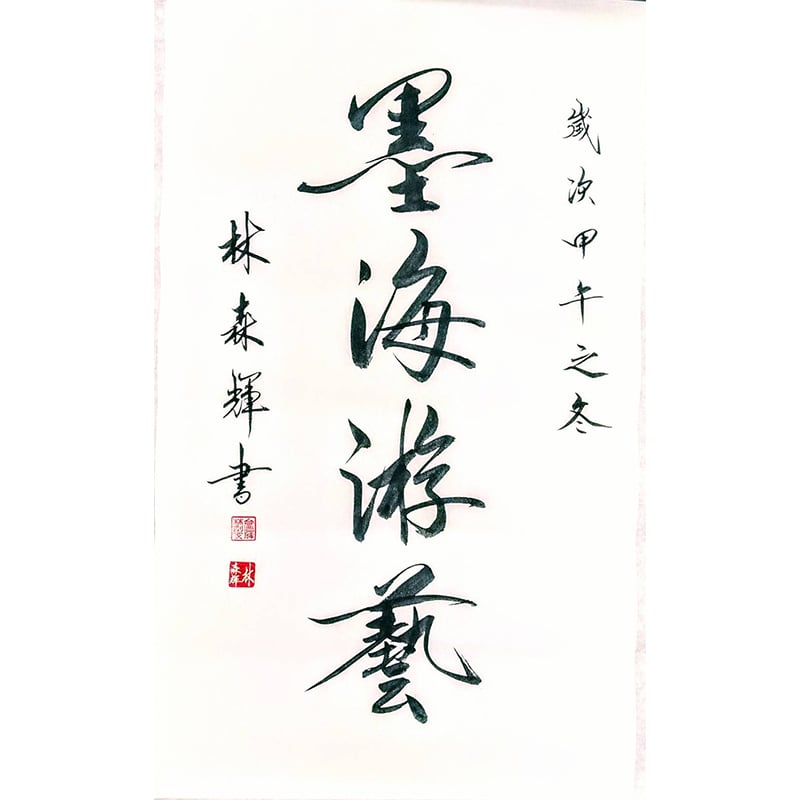 歲次甲午之冬
墨海游藝
林森輝書
林森輝